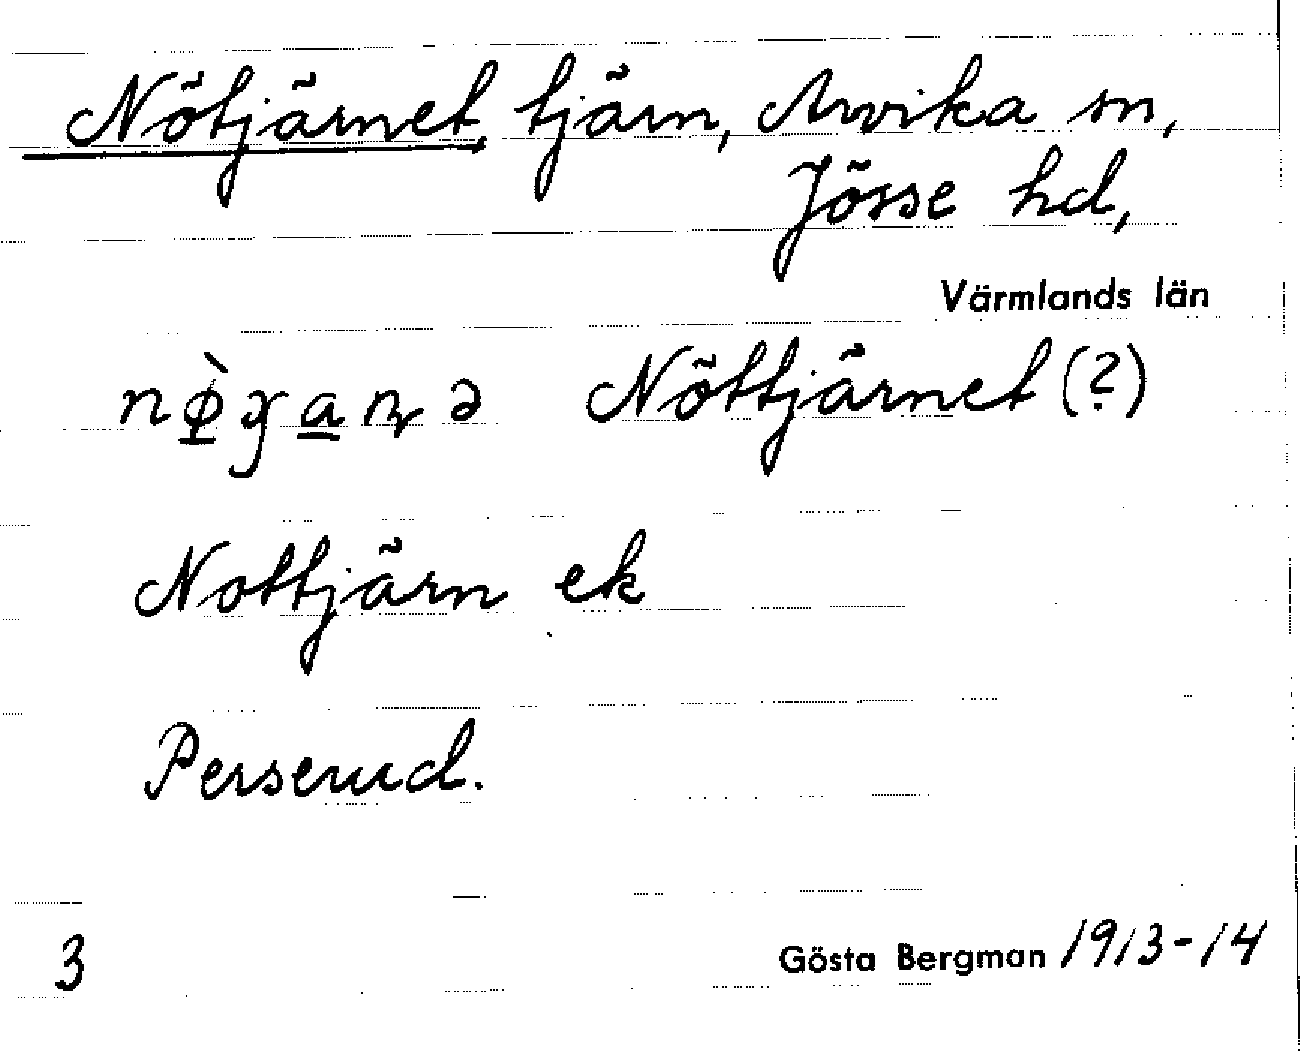 Nötjärnet, tjärn, Arvika sn,
Jösse hd,
Värmlands län
Nöttjärnet (?)
Nottjärn ek
Perserud.
3 Gösta Bergman 1913-14